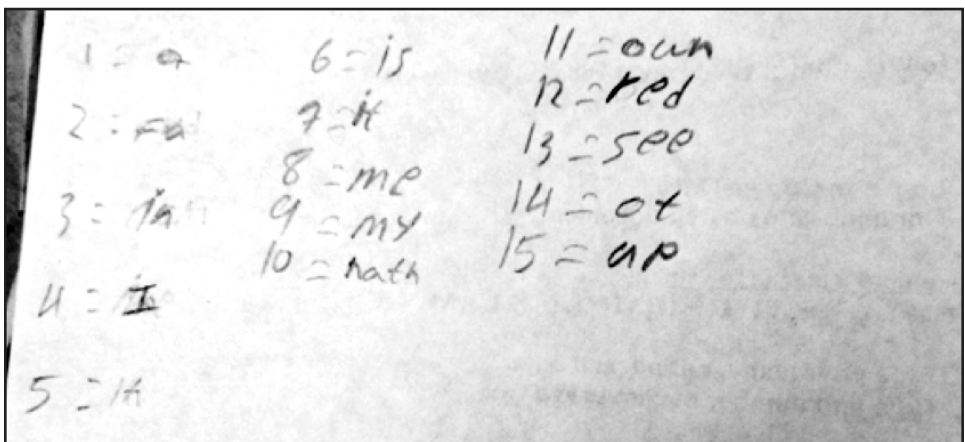 1 = a
2 =
3 = in
4 = I
5 = it
6 = is
7 = it
8 = me
9 = my
10 = nath
11 = own
12 = red
13 = see
14 = ot
15 = up